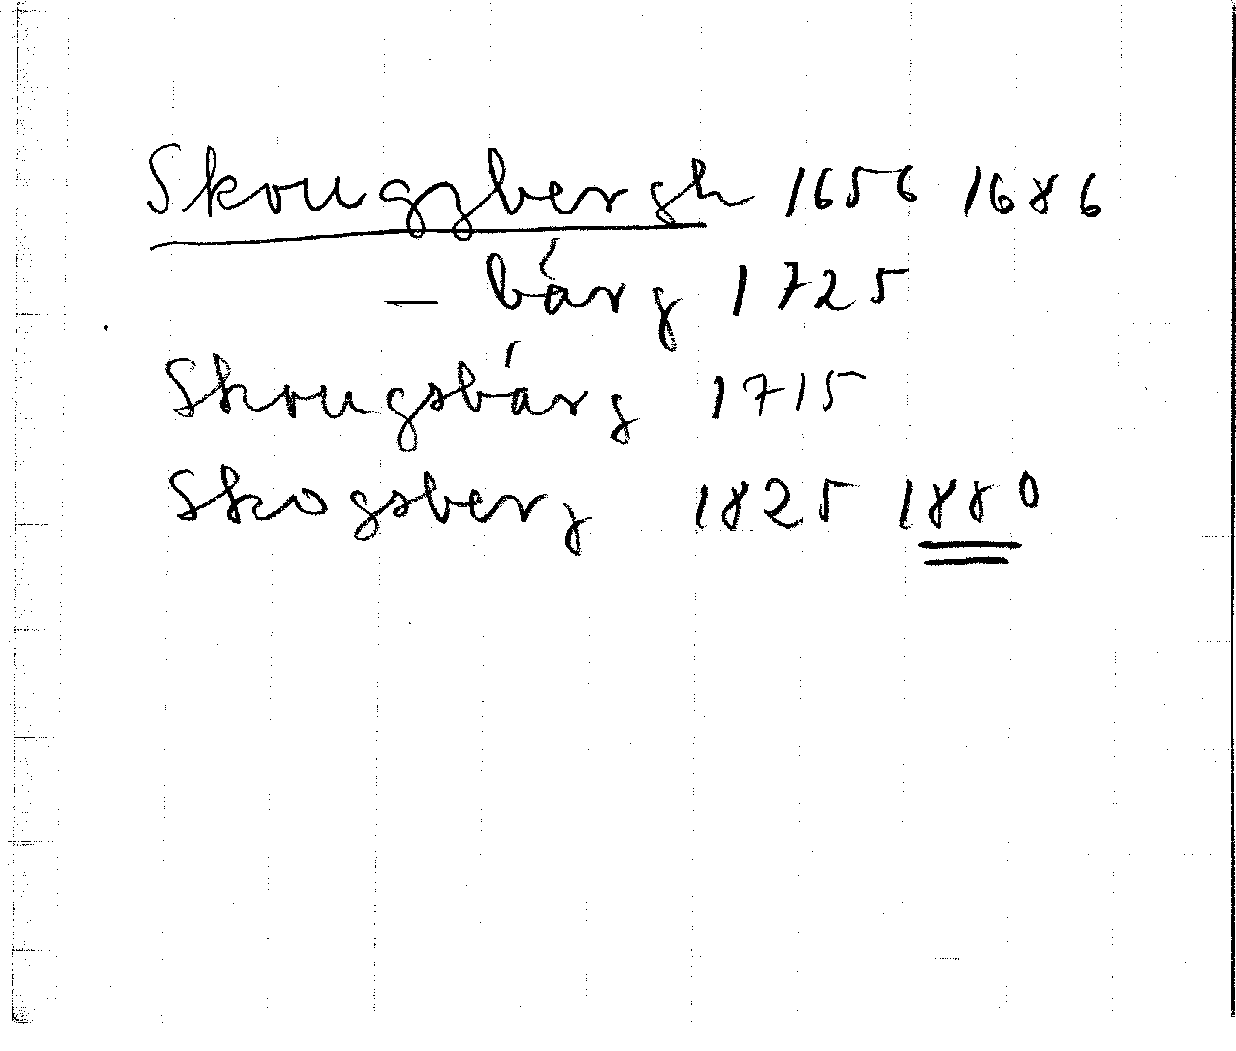 Skougzbergh 1656 1686
— bárg 1725
Skougsbárg 1715
Skogsberg 1825 1880